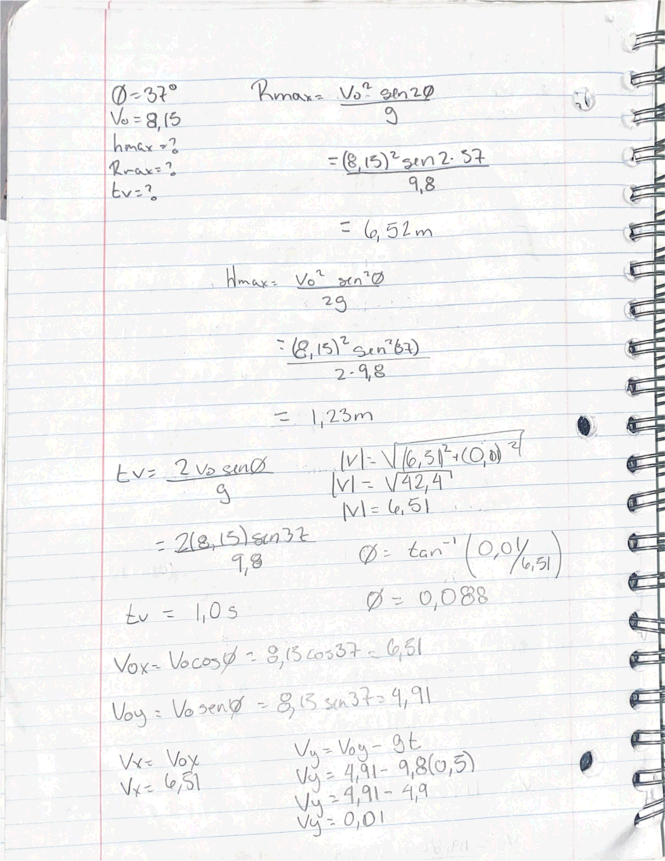 Ø = 37°
Vo = 8,15
hmax = ?
Rmax = ?
tv = ?
Rmax = Vo² sen2Ø / g
= (8,15)² sen 2·37 / 9,8
= 6,52m
Hmax = Vo² sen²Ø / 2g
= (8,15)² sen²(37) / 2·9,8
= 1,23m
tv = 2 Vo senØ / g
= 2(8,15) sen 37 / 9,8
tv = 1,0 s
|V| = √(6,51)² + (0,01)²
|V| = √42,4
|V| = 6,51
Ø = tan⁻¹ (0,01/6,51)
Ø = 0,088
Vox = Vo cosØ = 8,15 cos37 = 6,51
Voy = Vo senØ = 8,15 sen37 = 4,91
Vx = Vox
Vx = 6,51
Vy = Voy - gt
Vy = 4,91 - 9,8(0,5)
Vy = 4,91 - 4,9
Vy = 0,01